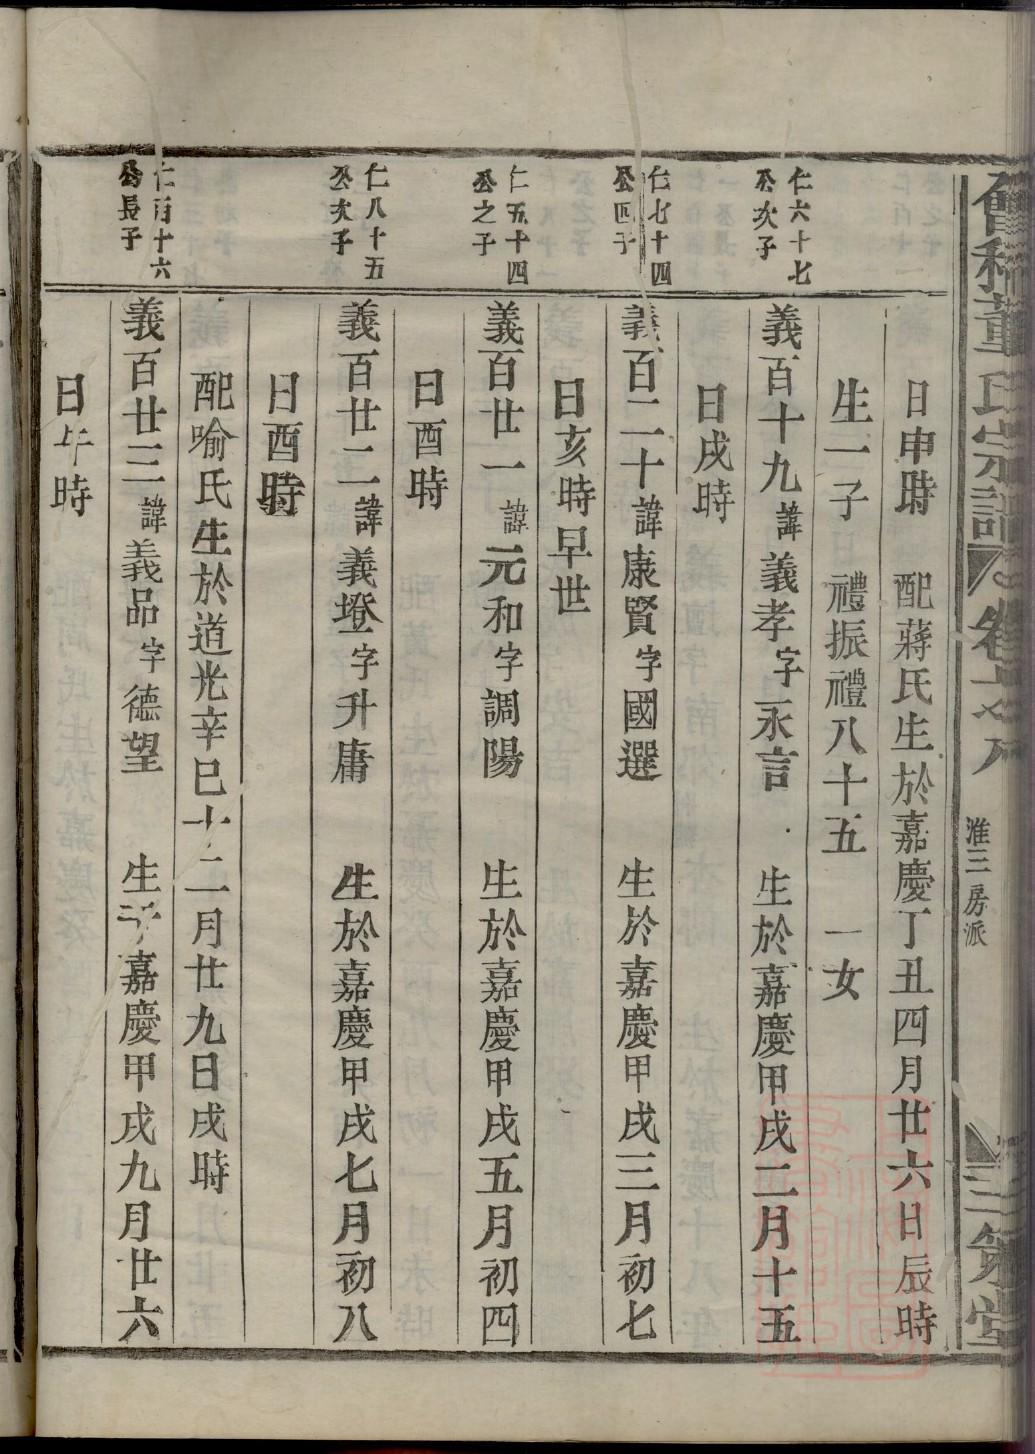 會稽董氏宗譜
准三房派
三策堂
日申時　配蔣氏生於嘉慶丁丑四月廿六日辰時
生一子　禮振禮八十五　一女
仁六十七
公次子
義百十九諱義孝字永言　生於嘉慶甲戌二月十五
日戌時
仁七十四
公四子
義百二十諱康賢字國選　生於嘉慶甲戌三月初七
日亥時早世
仁五十四
公之子
義百廿一諱元和字調陽　生於嘉慶甲戌五月初四
日酉時
仁八十五
公次子
義百廿二諱義墱字升庸　生於嘉慶甲戌七月初八
日酉時
配喻氏生於道光辛巳十二月廿九日戌時
仁百十六
公長子
義百廿三諱義品字德望　生于嘉慶甲戌九月廿六
日午時